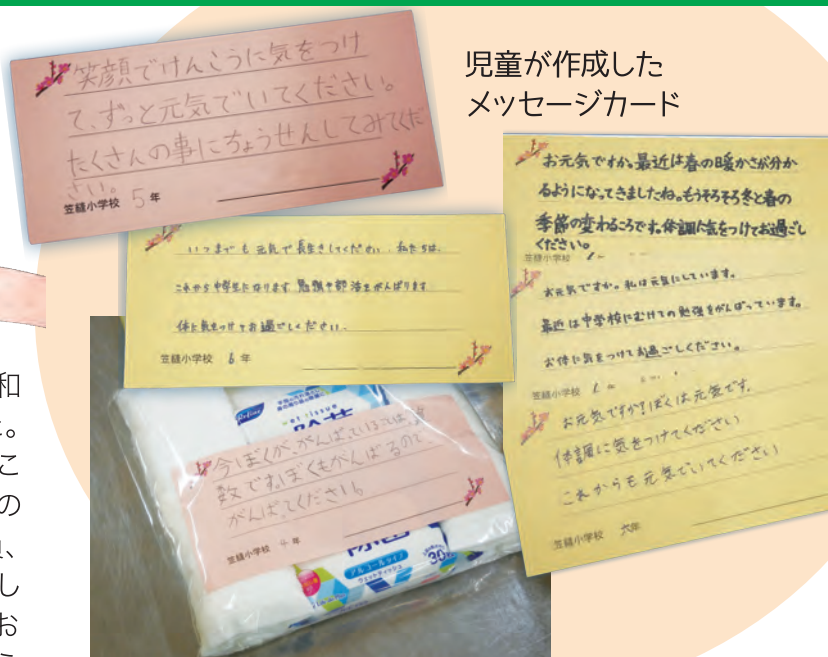 児童が作成した
メッセージカード
笑顔でけんこうに気をつけ
て、ずっと元気でいてください。
たくさんの事にちょうせんしてみてくだ
さい。
笠縫小学校 5年
いつまでも元気で長生きしてください。私たちは、
これから中学生になります 勉強や部活をがんばります
体に気をつけてお過ごしください。
笠縫小学校 6年
お元気ですか。最近は春の暖かさが分か
るようになってきましたね。もうそろそろ冬と春の
季節の変わるころです。体調に気をつけてお過ごし
ください。
笠縫小学校
お元気ですか。私は元気にしています。
最近は中学校にむけての勉強をがんばっています。
お体に気をつけてお過ごしください。
笠縫小学校
お元気ですか?ぼくは元気です。
体調に気をつけてください
これからも元気でいてください
笠縫小学校 六年
Refine
wet tissue
除菌
今ぼくが、がんばっていることは、算
数です。ぼくもがんばるので、
がんばってください。
笠縫小学校 4年
除菌
アルコールタイプ
ウェットティッシュ
30
和
た。
こ
の
、
し
お